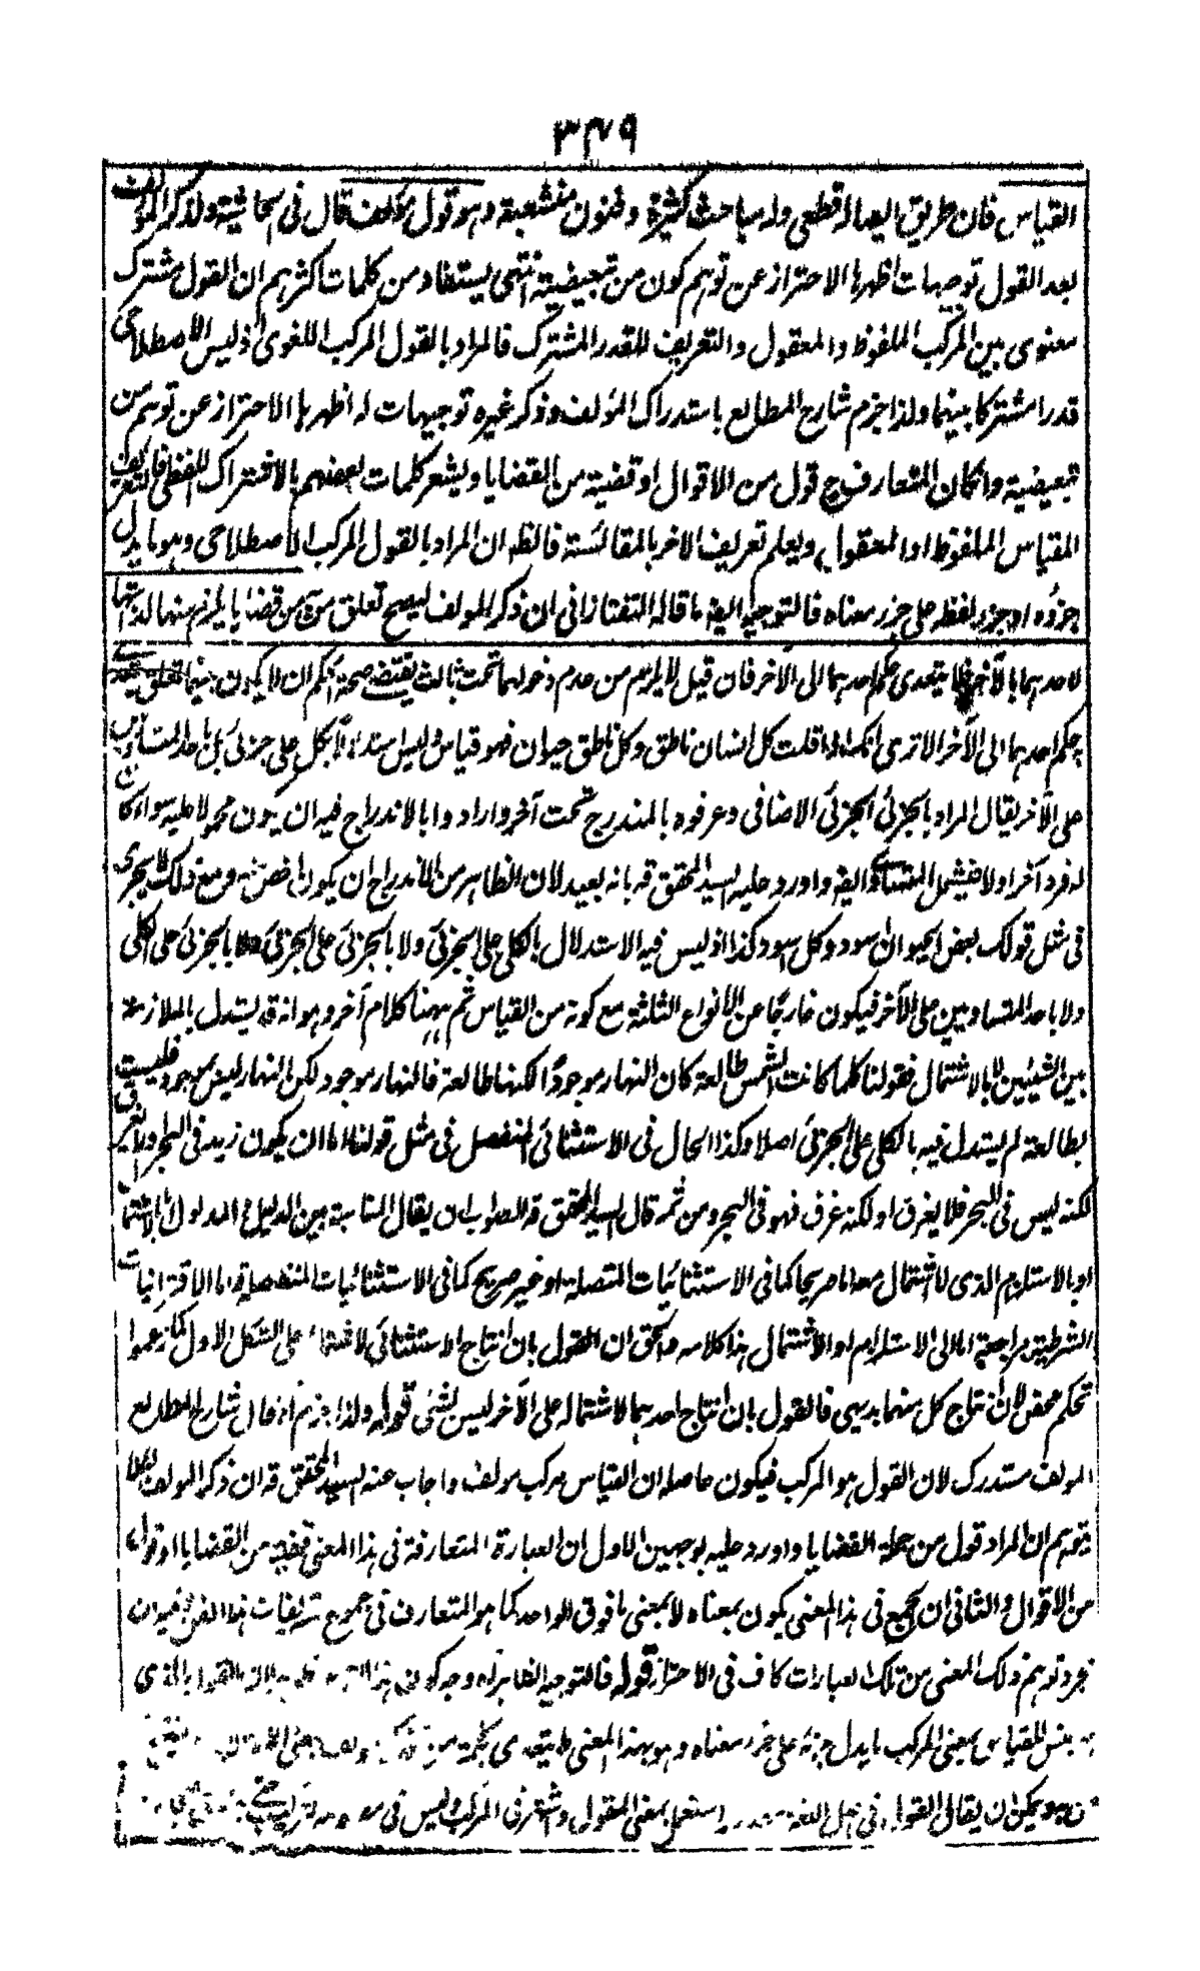 ٣٤٩
القياس فان طريق ايصاله قطعى وله مباحث كثيرة وفنون منشعبة وهو قول مؤلف قال فى الحاشية ولذكر المؤلف
بعد القول توجيهات اظهرها الاحتراز عن توهم كون من تبعيضية انتهى يستفاد من كلمات اكثرهم ان القول مشترك
معنوى بين المركب الملفوظ والمعقول والتعريف للقدر المشترك فالمراد بالقول المركب اللغوى اذ ليس الاصطلاحى
قدرا مشتركا بينهما ولذا جزم شارح المطالع باستدراك المؤلف وذكر غيره توجيهات له اظهرها الاحتراز عن توهم من
تبعيضية وان كان المتعارف ح قول من الاقوال او قضية من القضايا ويشعر كلمات بعضهم بالاشتراك اللفظى فالتعريف
للقياس الملفوظ او المعقول ويعلم تعريف الاخر بالمقائسة فالظ ان المراد بالقول المركب الاصطلاحى وهو ما يدل
جزؤه او جزء لفظه على جزء معناه فالتوجيه ايضا ما قاله التفتازانى ان ذكر المولف ليصح تعلق من به من قضايا يلزم منها لذاتها
لاحدهما بالآخر فلا يتعدى حكم احدهما الى الآخر فان قيل لا يلزم من عدم دخولهما تحت ثالث يقتضى صحة الحكم ان لا يكون بينهما تعلق
حكم احدهما الى الآخر الا ترى انك اذا قلت كل انسان ناطق وكل ناطق حيوان فهو قياس وليس استدلالا بكل على جزئى بل باحد المتساويين
على الآخر يقال المراد بالجزئى الجزئى الاضافى وعرفوه بالمندرج تحت آخر وارادوا بالاندراج فيه ان يكون محمولا عليه سواء كان
له فرد آخر اولا فيشمل المتساوى ايضا واورد عليه السيد المحقق قه بانه بعيد لان الظاهر من الاندراج ان يكون اخص منه ومع ذلك لا يجرى
فى مثل قولك بعض الحيوان اسود وكل اسود كذا اذ ليس فيه الاستدلال بالكلى على الجزئى ولا بالجزئى على الجزئى ولا بالجزئى على الكلى
ولا باحد المتساويين على الآخر فيكون خارجا عن الانواع الثلثة مع كونه من القياس ثم ههنا كلام آخر وهو انه قد يستدل بالملازمة
بين الشيئين لا بالاشتمال فقولنا كلما كانت الشمس طالعة كان النهار موجودا لكنها طالعة فالنهار موجود لكن النهار ليس بموجود فليست
بطالعة لم يستدل فيه بالكلى على الجزئى اصلا وكذا الحال فى الاستثنائى المنفصل فى مثل قولنا اما ان يكون زيد فى البحر او لا يغرق
لكنه ليس فى البحر فلا يغرق او لكنه غرق فهو فى البحر ومن ثمر قال السيد المحقق قه الصواب ان يقال المناسبة بين الدليل والمدلول اما بالاشتمال
او بالاستلزام الذى لا اشتمال معه اما صريحا كما فى الاستثنائيات المتصلة او غير صريح كما فى الاستثنائيات المنفصلة واما الاقترانيات
الشرطية فراجعة اما الى الاستلزام او الاشتمال هذا كلامه والحق ان القول بان انتاج الاستثنائى لاشتماله على الشكل الاول كما زعموا
تحكم محض لان انتاج كل منهما بديهى فالقول بان انتاج احدهما لاشتماله على الآخر ليس بشئ قوله ولذا جزم اذ قال شارح المطالع
المولف مستدرك لان القول هو المركب فيكون حاصله ان القياس مركب مولف واجاب عنه السيد المحقق قه ان ذكر المولف لئلا
يتوهم ان المراد قول من جملة القضايا واورد عليه بوجهين الاول ان العبارة المتعارفة فى هذا المعنى قضية من القضايا او قول
من الاقوال والثانى ان الجمع فى هذا المعنى يكون بمعناه لا بمعنى ما فوق الواحد كما هو المتعارف فى جموع تعريفات هذا الفن
مجرد توهم ذلك المعنى من تلك العبارات كاف فى الاحتراز قوله فالتوجيه الظاهر وجه كون هذا
جنس للقياس بمعنى المركب ما يدل جزئه على جزء معناه وهو بهذا المعنى لا يتعدى بكلمة من
يمكن ان يقال القول فى اصل اللغة استعمل بمعنى المقول واشتهر فى المركب وليس فى